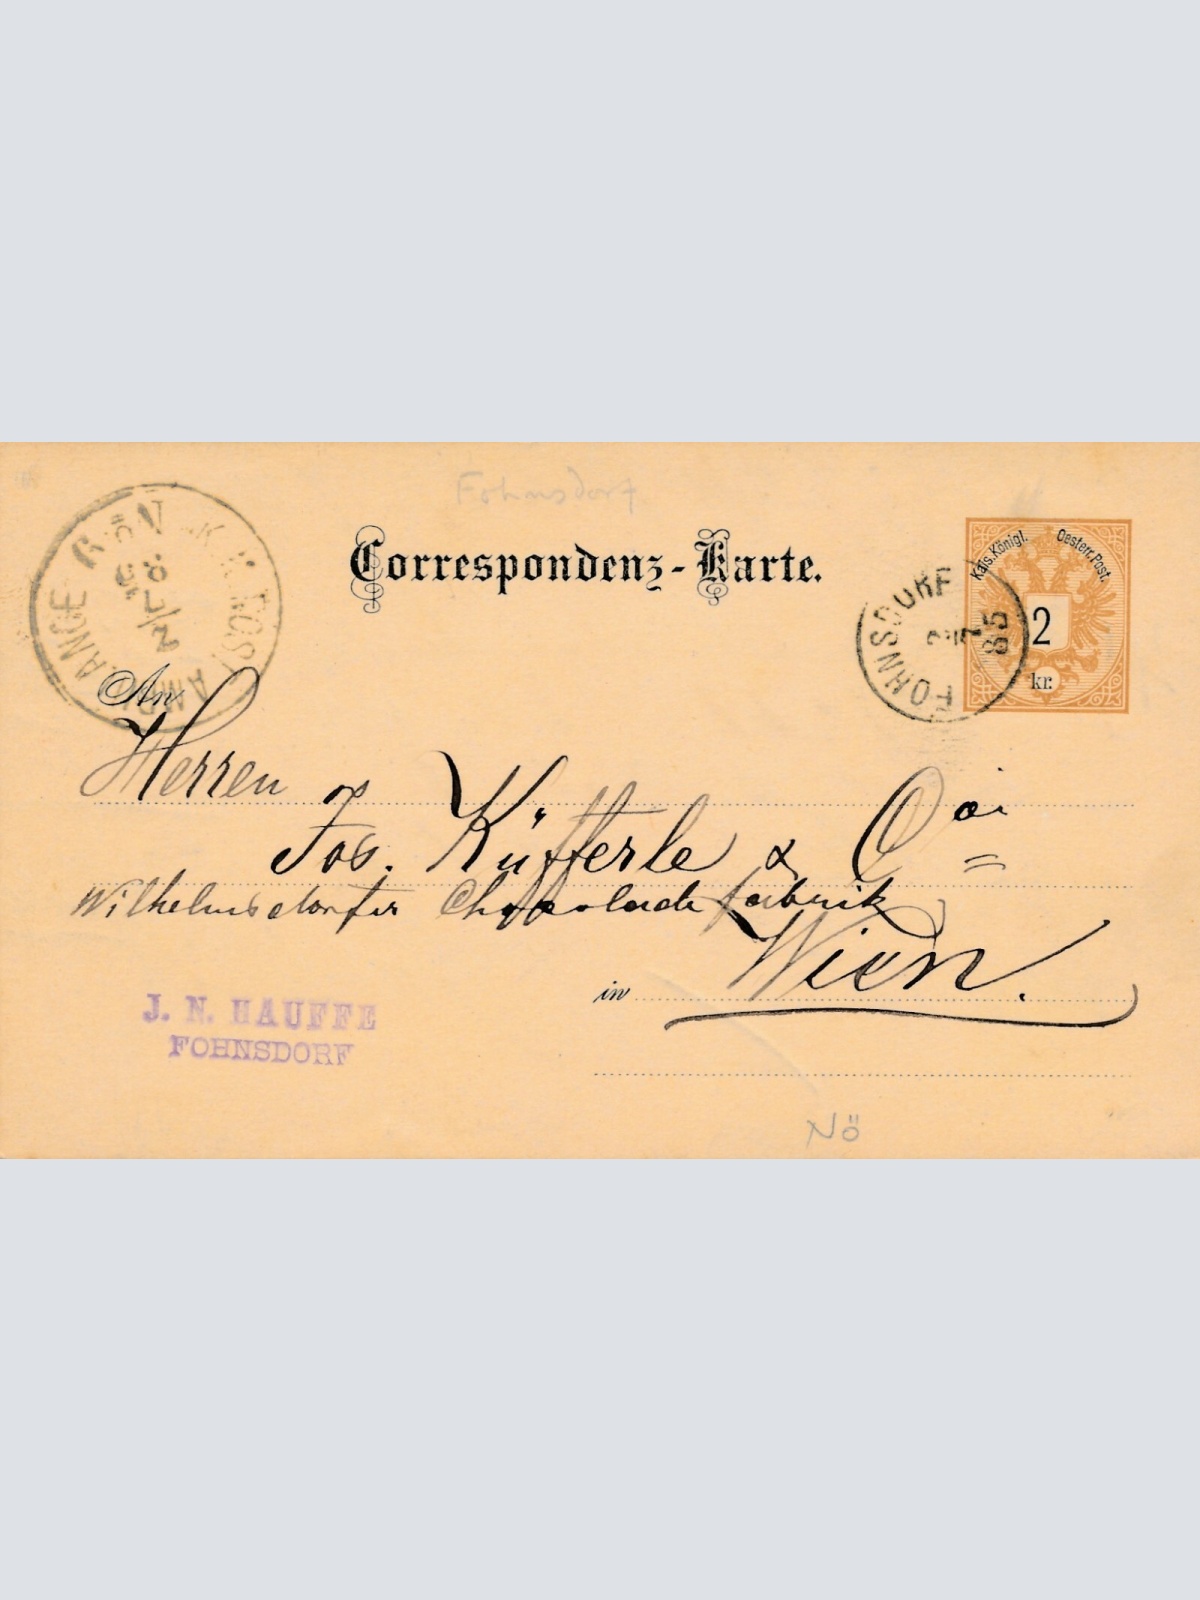 Fohnsdorf
Correspondenz-Karte.
Kais. Königl. Oesterr. Post.
2
kr.
FOHNSDORF
7
85
K. K. POST
An
Herren
Jos. Küfferle & Co
Wilhelmsdorfer Chokolade fabrik
in Wien.
J. N. HAUFFE
FOHNSDORF
NÖ